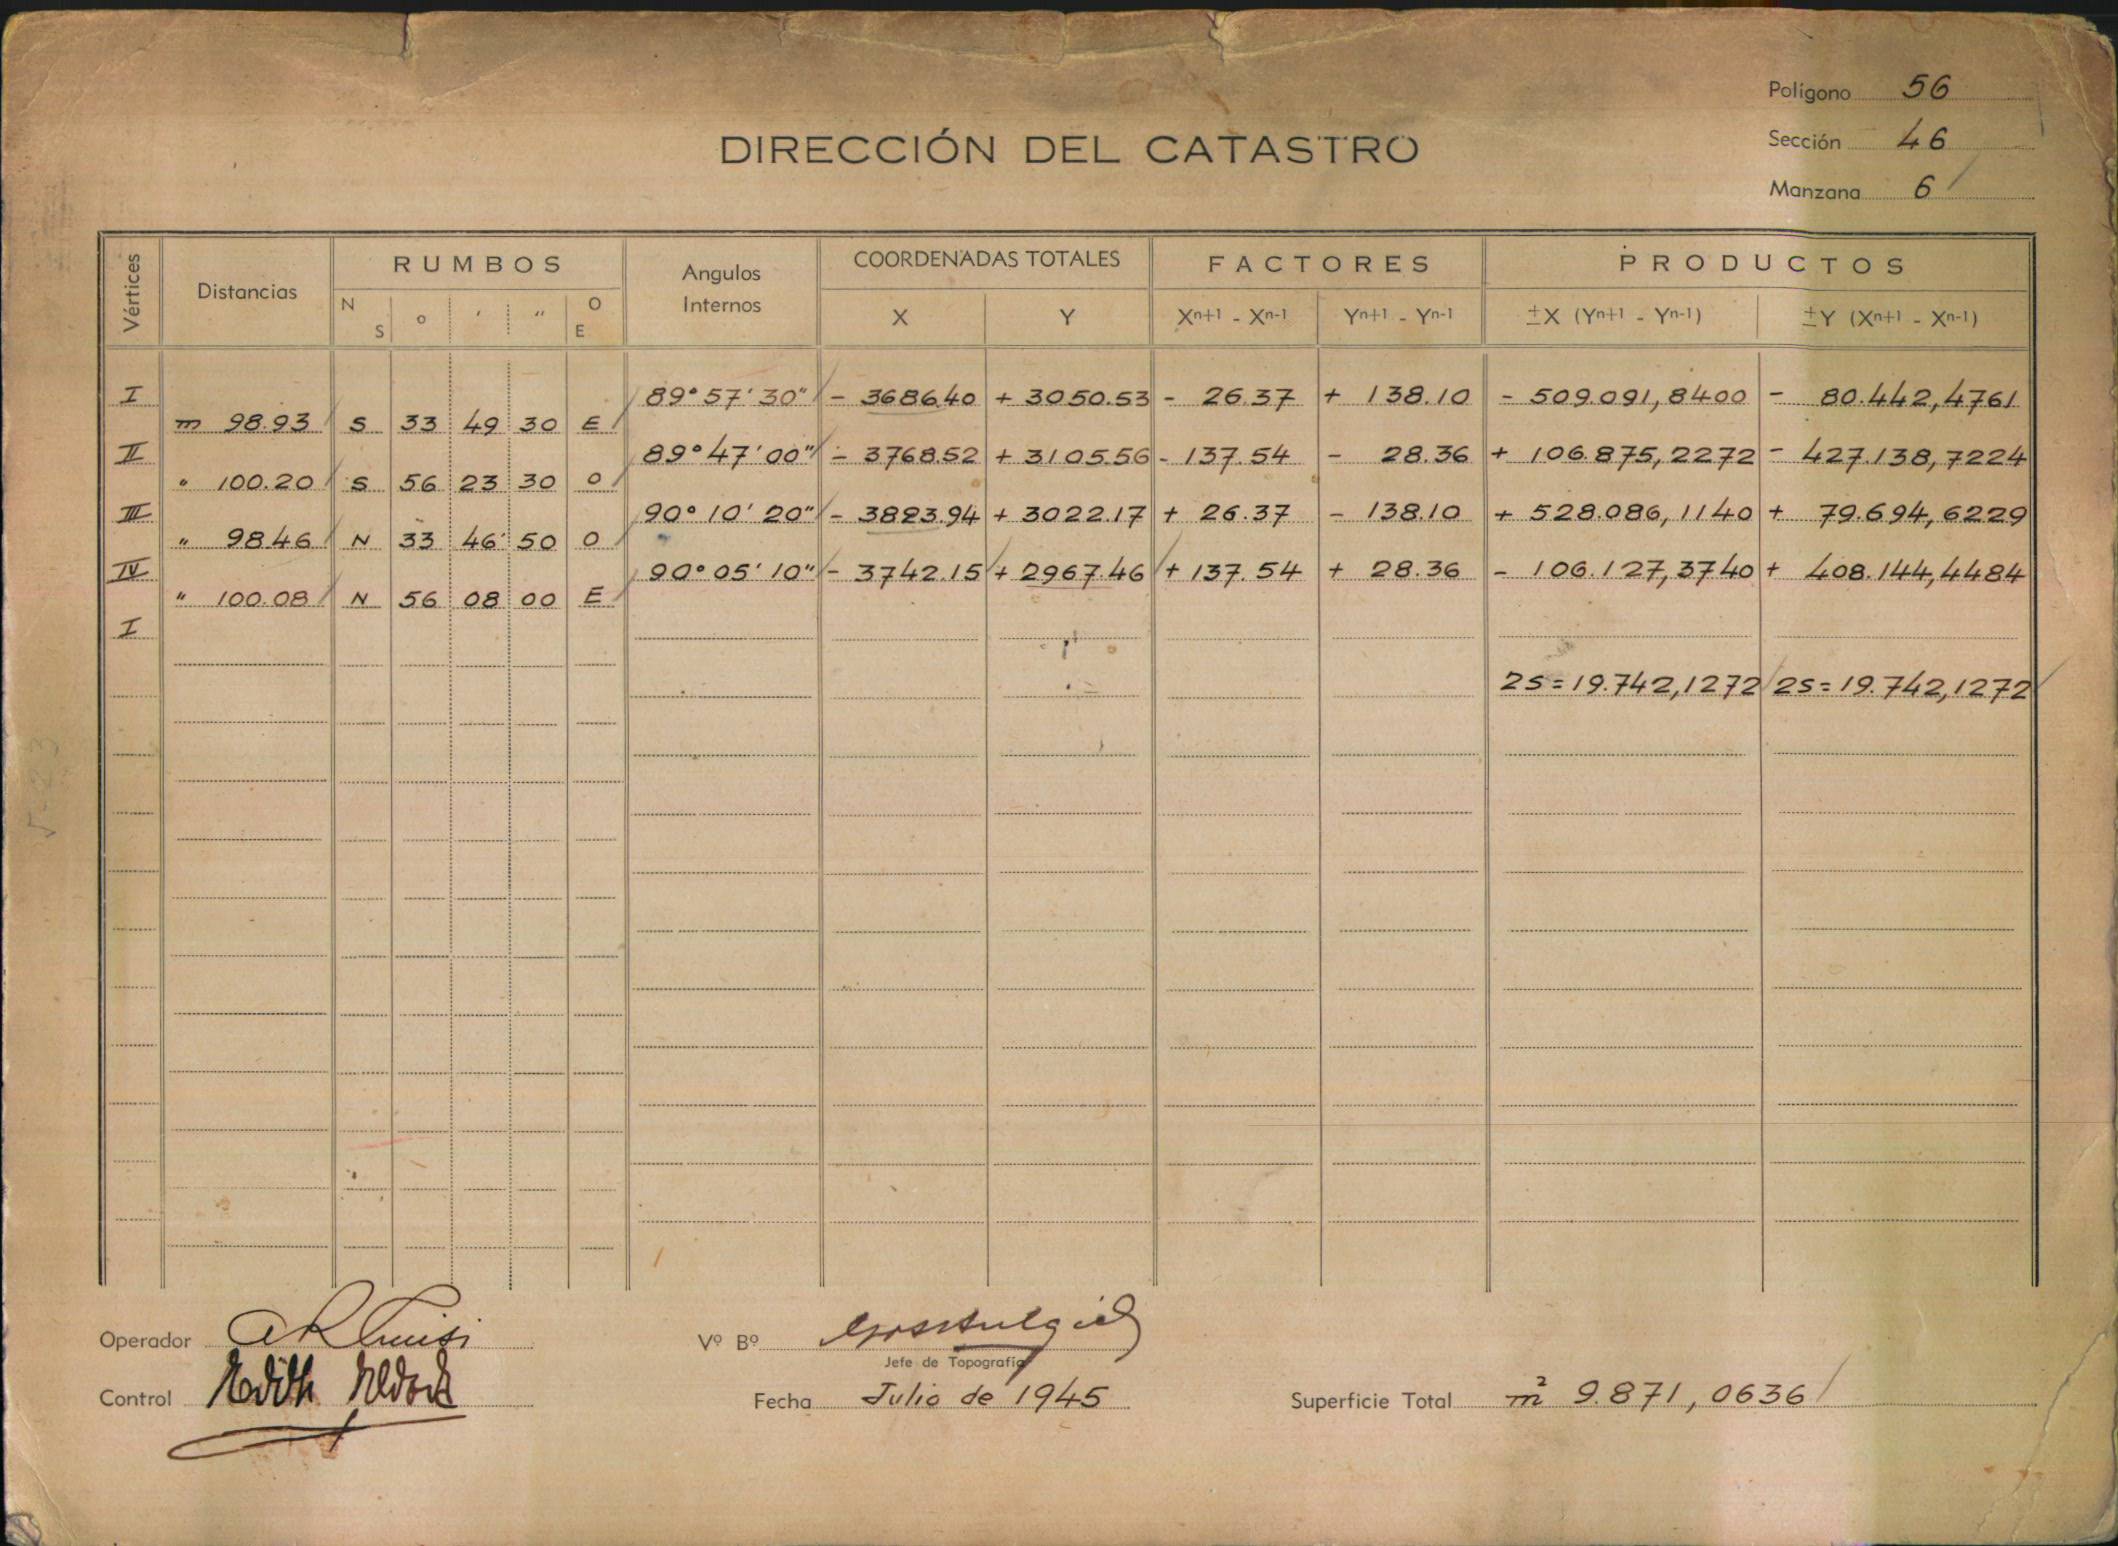 Polígono 56
DIRECCIÓN DEL CATASTRO
Sección 46
Manzana 6
Vértices Distancias RUMBOS Angulos Internos COORDENADAS TOTALES FACTORES PRODUCTOS
N S o ′ ″ O E X Y Xn+1 - Xn-1 Yn+1 - Yn-1 ±X (Yn+1 - Yn-1) ±Y (Xn+1 - Xn-1)
I 89° 57' 30" - 3686.40 + 3050.53 - 26.37 + 138.10 - 509.091,8400 - 80.442,4761
m 98.93 S 33 49 30 E
II 89° 47' 00" - 3768.52 + 3105.56 - 137.54 - 28.36 + 106.875,2272 - 427.138,7224
" 100.20 S 56 23 30 O
III 90° 10' 20" - 3823.94 + 3022.17 + 26.37 - 138.10 + 528.086,1140 + 79.694,6229
" 98.46 N 33 46 50 O
IV 90° 05' 10" - 3742.15 + 2967.46 + 137.54 + 28.36 - 106.127,3740 + 408.144,4484
" 100.08 N 56 08 00 E
I
2S = 19.742,1272 2S = 19.742,1272
Operador Vº Bº
Jefe de Topografía
Control Edith Fecha Julio de 1945 Superficie Total m² 9.871,0636